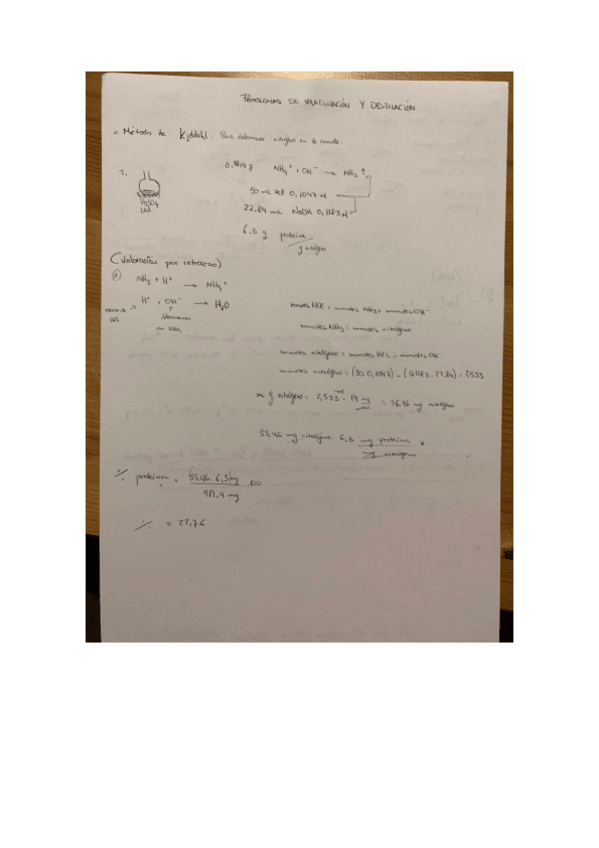 PROBLEMAS DE VOLATILIZACIÓN Y DESTILACIÓN
Método de Kjeldahl: Para determinar nitrógeno en la
NH₄⁺ + OH⁻ → NH₃ ↑
50 mL HCl 0,1047 M
22,84 mL NaOH 0,1183 M
6,3 g proteína
g nitrógeno
H₂SO₄
(Valoración por retroceso)
NH₃ + H⁺ → NH₄⁺
H⁺ + OH⁻ → H₂O
mmoles HCl = mmoles NH₃ + mmoles OH⁻
mmoles NH₃ = mmoles nitrógeno
mmoles nitrógeno = mmoles HCl - mmoles OH⁻
mmoles nitrógeno = (50·0,1047) - (0,1183·22,84) = 2,533
mg nitrógeno = 2,533 · 14 mg = 35,46 mg nitrógeno
35,46 mg nitrógeno · 6,3 mg proteína
mg nitrógeno
% proteína = 35,46 · 6,3 mg · 100
% = 22,76